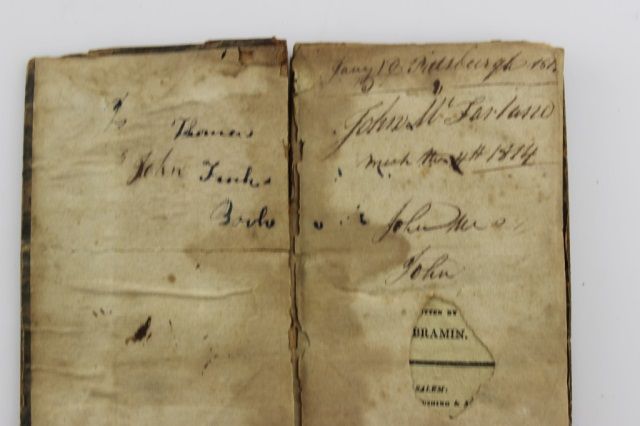 Thomas
John
Book
Jany 10 Pittsburgh 181
John McFarland
4th 1814
John Mc
John
ITTEN BY
BRAMIN.
SALEM:
USHING & A